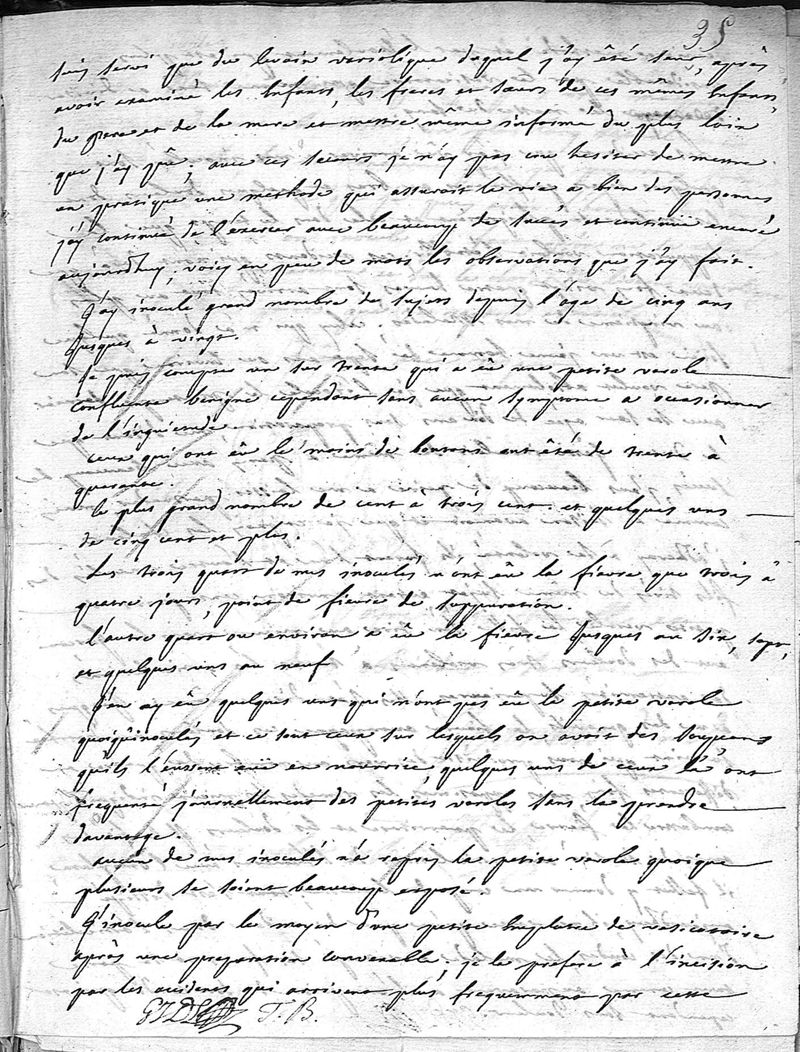 35
suis servi que du levain variolique duquel j'ay été seur, après
avoir examiné les Enfants, les freres et sœurs de ces mêmes Enfants,
du pere et de la mere et m'ettre même informé du plus loin
que j'ay pûe; avec ces secours je n'ay pas cru hesiter de mettre
en pratique une methode qui assuroit la vie a bien des personnes
j'ay continué de l'éxercer avec beaucoup de succès et continuë encore
aujourdhuy; voicy en peu de mots les observations que j'ay fait.
J'ay inoculé grand nombre de sujets depuis l'âge de cinq ans
jusques à vingt.
Je puis compter un sur trente qui a eû une petite verole
confluente benigne cependant sans aucun symptome a occasionner
de l'inquietude
ceux qui ont êu le moins de boutons ont êtés de trente à
quarante.
le plus grand nombre de cent à trois cent. et quelques uns
de cinq cent et plus.
Les trois quart de mes inoculés n'ont êu la fievre que trois à
quatre jours, point de fievre de suppuration.
l'autre quart ou environ a êu la fievre jusques au six, sept,
et quelques uns au neuf
J'en ay êu quelques uns qui n'ont pas êu la petite verole
quoiqu'inoculés et ce sont ceux sur lesquels on avoit des soupçons
quils l'eussent euë en nourrice, quelques uns de ceux là ont
frequenté journellement des petites veroles sans la prendre
davantage.
aucun de mes inoculés n'a repris la petite verole quoique
plusieurs se soient beaucoup exposé.
J'inocule par le moyen d'une petite Emplatre de vesicatoire
après une preparation convenable; je la prefere à l'incision
par les accidens qui arrivent plus frequemment par cette
T. B.